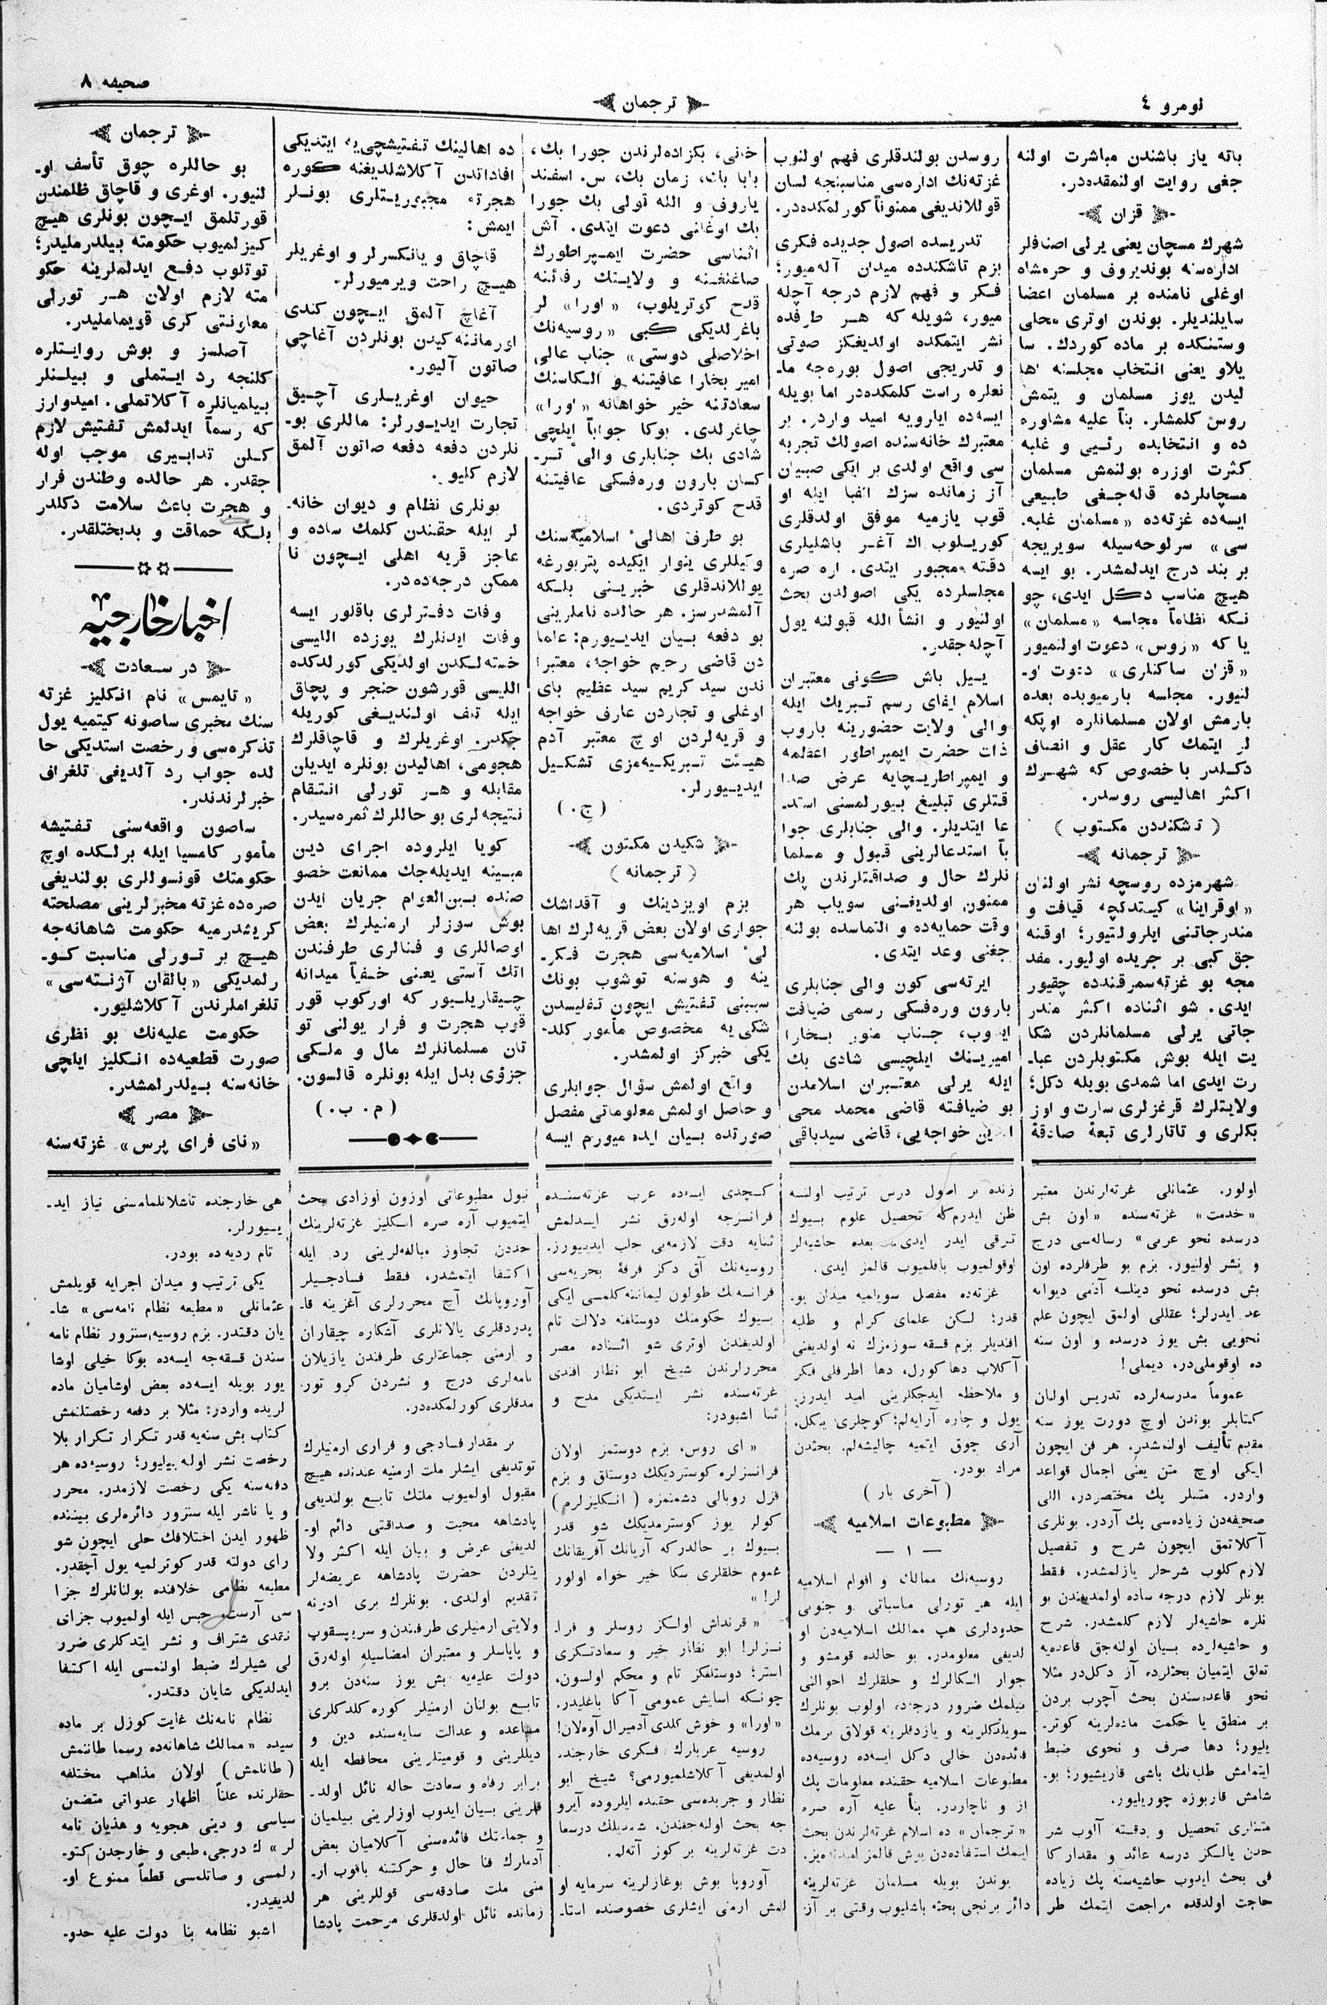 نومرو ٤
ترجمان
صحیفه ٨
باته یاز باشندن مباشرت اولنه
جغی روایت اولنمقده‌در.
قزان
شهرك مسچان یعنی یرلی اصنافلر
اداره‌سنه بوندیروف و حرمشاه
اوغلی نامنده بر مسلمان اعضا
سایلندیلر. بوندن اوتری محلی
وستنكده بر ماده كوردك. سا
یلاو یعنی انتخاب مجلسنه اها
لیدن یوز مسلمان و یتمش
روس كلمشلر. بناً علیه مشاوره
ده و انتخابده رئیی و غلبه
كثرت اوزره بولنمش مسلمان
مسچانلرده قاله‌جغی طبیعی
ایسه‌ده غزته‌ده «مسلمان غلبه‌
سی» سرلوحه‌سیله سویریجه
بر بند درج ایدلمشدر. بو ایسه
هیچ مناسب دكل ایدی، چو
نكه نظاماً مجلسه «مسلمان»
یا كه «روس» دعوت اولنمیور
«قزان ساكنلری» دعوت او-
لنیور. مجلسه بارمیوبده بعده
بارمش اولان مسلمانلره اوپكه
لر ایتمك كار عقل و انصاف
دكلدر باخصوص كه شهرك
اكثر اهالیسی روسدر.
(تشكنددن مكتوب)
ترجمانه
شهرمزده روسچه نشر اولنان
«اوقراینا» كیتدكچه قیافت و
مندرجاتنی ایلرولتیور؛ اوقنه
جق كبی بر جریده اولیور. مقد
مجه بو غزته سمرقندده چقیور
ایدی. شو اثناده اكثر مندر
جاتی یرلی مسلمانلردن شكا
یت ایله بوش مكتوبلردن عبا-
رت ایدی اما شمدی بویله دكل؛
ولایتلرك قرغزلری سارت و اوز
بكلری و تاتارلری تبعهٔ صادقهٔ
روسدن بولندقلری فهم اولنوب
غزته‌نك اداره‌سی مناسبنجه لسان
قوللاندیغی ممنوناً كورلمكده‌در.
تدریسده اصول جدیده فكری
بزم تاشكندده میدان آله‌میور؛
فكر و فهم لازم درجه آچله
میور، شویله كه هر طرفده
نشر ایتمكده اولدیغكز صوتی
و تدریجی اصول بوره‌جه ما-
نعلره راست كلمكده‌در اما بویله
ایسه‌ده ایلرویه امید واردر. بر
معتبرك خانه‌سنده اصولك تجربه
سی واقع اولدی بر ایكی صبیان
آز زمانده سزك الفبا ایله او
قوب یازمیه موفق اولدقلری
كوریلوب اك آغر باشلیلری
دقته مجبور ایتدی. اره صره
مجلسلرده یكی اصولدن بحث
اولنیور و انشأ الله قبولنه یول
آچله‌جقدر.
ییل باش كونی معتبران
اسلام ایفای رسم تبریك ایله
والیٔ ولایت حضورینه باروب
ذات حضرت ایمپراطور اعظمه
و ایمپراطریچایه عرض صدا
قتلری تبلیغ بیورلمسنی استد-
عا ایتدیلر. والی جنابلری جوا
باً استدعالرینی قبول و مسلما
نلرك حال و صداقتلرندن پك
ممنون اولدیغنی سویاب هر
وقت حمایه‌ده و التماسده بولنه
جغنی وعد ایتدی.
ایرته‌سی كون والی جنابلری
بارون وره‌فسكی رسمی ضیافت
ایدوب، جناب منور بخارا
امیرینك ایلچیسی شادی بك
ایله یرلی معتبران اسلامدن
بو ضیافته قاضی محمد محی
الدین خواجه‌یی، قاضی سیدباقی
خانی، بكزاده‌لرندن جورا بك،
بابا بك، زمان بك، س. اسفند
یاروف و الله قولی بك جورا
بك اوغلنی دعوت ایتدی. آش
اثناسی حضرت ایمپراطورك
صاغلغنه و ولایتك رفاغنه
قدح كوتریلوب، «اورا» لر
باغرلدیكی كبی «روسیه‌نك
اخلاصلی دوستی» جناب عالی
امیر بخارا عافیتنه و الكاسنك
سعادتنه خیر خواهانه «اورا»
چاغرلدی. بوكا جواباً ایلچی
شادی بك جنابلری والیٔ تر-
كستان بارون وره‌فسكی عافیتنه
قدح كوتردی.
بو طرف اهالیٔ اسلامیه‌سنك
وكیللری ینوار ایكیده پتربورغه
یوللاندقلری خبرینی بلكه
آلمشدرسز. هر حالده ناملرینی
بو دفعه بیان ایدییورم: علما
دن قاضی رحیم خواجه، معتبرا
ندن سید كریم سید عظیم بای
اوغلی و تجاردن عارف خواجه
و قریه‌لردن اوچ معتبر آدم
هیئت تبریكیه‌مزی تشكیل
ایدییورلر.
(ج.)
شكیدن مكتوب
(ترجمانه)
بزم اویزدینك و آقداشك
جواری اولان بعض قریه‌لرك اها
لیٔ اسلامیه‌سی هجرت فكر-
ینه و هوسنه توشوب بونك
سببنی تفتیش ایچون تفلیسدن
شكی یه مخصوص مأمور كلد-
یكی خبركز اولمشدر.
واقع اولمش سؤال جوابلری
و حاصل اولمش معلوماتی مفصل
صورتده بیان ایده میورم ایسه
ده اهالینك تفتیشچی‌یه ایتدیكی
افاداتدن آكلاشلدیغنه كوره
هجرته مجبوریتلری بونلر
ایمش:
قاچاق و یانكسرلر و اوغریلر
هیچ راحت ویرمیورلر.
آغاچ آلمق ایچون كندی
اورماننه كیدن بونلردن آغاچی
صاتون آلیور.
حیوان اوغریلری آچیق
تجارت ایدییورلر: ماللری بو-
نلردن دفعه دفعه صاتون آلمق
لازم كلیو.
بونلری نظام و دیوان خانه‌
لر ایله حقندن كلمك ساده و
عاجز قریه اهلی ایچون نا
ممكن درجه‌ده‌در.
وفات دفترلری باقلور ایسه
وفات ایدنلرك یوزده اللیسی
خسته‌لكدن اولدیكی كورلدكده
اللیسی قورشون خنجر و پچاق
ایله تلف اولندیغی كوریله
جكدر. اوغریلرك و قاچاقلرك
هجومی، اهالیدن بونلره ایدیلن
مقابله و هر تورلی انتقام
نتیجه‌لری بو حاللرك ثمره‌سیدر.
كویا ایلروده اجرای دین
مبینه ایدیله‌جك ممانعت خصو
صنده بین‌العوام جریان ایدن
بوش سوزلر ارمنیلرك بعض
اوصاللری و فنالری طرفندن
اتك آستی یعنی خفیاً میدانه
چیقاریلیور كه اوركوب قور
قوب هجرت و فرار یولنی تو
تان مسلمانلرك مال و ملكی
جزؤی بدل ایله بونلره قالسون.
(م. ب.)
ترجمان
بو حاللره چوق تأسف او-
لنیور. اوغری و قاچاق ظلمندن
قورتلمق ایچون بونلری هیچ
كیزلمیوب حكومته بیلدرملیدر؛
توتلوب دفع ایدلملرینه حكو
مته لازم اولان هر تورلی
معاونتی كری قویماملیدر.
آصلسز و بوش روایتلره
كلنجه رد ایتملی و بیلنلر
بیلمیانلره آكلاتملی. امیدوارز
كه رسماً ایدلمش تفتیش لازم
كلن تدابیری موجب اوله
جقدر. هر حالده وطندن فرار
و هجرت باعث سلامت دكلدر
بلكه حماقت و بدبختلقدر.
اخبار خارجیه
در سعادت
«تایمس» نام انكلیز غزته
سنك مخبری ساصونه كیتمیه یول
تذكره‌سی و رخصت استدیكی حا
لده جواب رد آلدیغی تلغراف
خبرلرندندر.
ساصون واقعه‌سنی تفتیشه
مأمور كامسیا ایله برلكده اوچ
حكومتك قونسوللری بولندیغی
صره‌ده غزته مخبرلرینی مصلحته
كریشدرمیه حكومت شاهانه‌جه
هیچ بر تورلی مناسبت كو-
رلمدیكی «بالقان آژنته‌سی»
تلغراملرندن آكلاشلیور.
حكومت علیه‌نك بو نظری
صورت قطعیه‌ده انكلیز ایلچی
خانه‌سنه بیلدرلمشدر.
مصر
«نای فرای پرس» غزته‌سنه
اولور. عثمانلی غزته‌لرندن معتبر
«خدمت» غزته‌سنده «اون بش
درسده نحو عربی» رساله‌سی درج
و نشر اولنیور. بزم بو طرفلرده اون
بش درسده نحو دینلسه آدمی دیوانه
عد ایدرلر؛ عقللی اولمق ایچون علم
نحویی بش یوز درسده و اون سنه
ده اوقوملی‌در، دیملی!
عموماً مدرسه‌لرده تدریس اولنان
كتابلر بوندن اوچ دورت یوز سنه
مقدم تألیف اولنمشدر. هر فن ایچون
ایكی اوچ متن یعنی اجمال قواعد
واردر. متنلر پك مختصردر، اللی
صحیفه‌دن زیاده‌سی پك آزدر. بونلری
آكلاتمق ایچون شرح و تفصیل
لازم كلوب شرحلر یازلمشدر، فقط
بونلر لازم درجه ساده اولمدیغندن بو
نلره حاشیه‌لر لازم كلمشدر. شرح
و حاشیه‌لرده بیان اولنه‌جق قاعده‌یه
تعلق ایتمیان بحثلرده آز دكل‌در مثلا
نحو قاعده‌سندن بحث آچرب بردن
بر منطق یا حكمت ماده‌لرینه كوتر-
یلیور؛ دها صرف و نحوی ضبط
ایتمامش طلبه‌نك باشی قاریشیور؛ بو-
شامش قاربوزه چوریلیور.
متنلری تحصیل و دقته آلوب شر
حدن یالكز درسه عائد و مقدار كا
فی بحث ایدوب حاشیه‌سنه پك زیاده
حاجت اولدقده مراجعت ایتمك طر
زنده بر اصول درس ترتیب اولنسه
ظن ایدرم‌كه تحصیل علوم بیوك
ترقی ایدر ایدی. بعده حاشیه‌لر
اوقولمیوب باقلمیوب قالمز ایدی.
غزته‌ده مفصل سویلمیه میدان یو-
قدر؛ لكن علمای كرام و طلبه
افندیلر بزم قسقه سوزمزك نه اولدیغنی
آكلاب دها كورل، دها اطرفلی فكر
و ملاحظه ایده‌جكلرینی امید ایدرز.
یول و چاره آرایه‌لم؛ كوچلری ییكل،
آزی چوق ایتمیه چالیشه‌لم. بحثدن
مراد بودر.
(آخری بار)
مطبوعات اسلامیه
— ١ —
روسیه‌نك ممالك و اقوام اسلامیه
ایله هر تورلی مناسباتی و جنوبی
حدودلری هپ ممالك اسلامیه‌دن او
لدیغی معلومدر. بو حالده قومشو و
جوار الكالرك و خلقلرك احوالنی
بیلمك ضرور درجه‌ده اولوب بونلرك
سویلدكلرینه و یازدقلرینه قولاق برمك
فائده‌دن خالی دكل ایسه‌ده روسیه‌ده
مطبوعات اسلامیه حقنده معلومات پك
از و ناچاردر. بناً علیه آره صره
«ترجمان» ده اسلام غزته‌لرندن بحث
ایتمك استفاده‌دن بوش قالمز
بوندن بویله مسلمان غزته‌لرینه
دائر برنجی بحثه باشلیوب وقتی بر آز
كچدی ایسه‌ده عرب غزته‌سنده
فرانسزجه اوله‌رق نشر ایدلمش
ثنایه دقت لازمه‌یی جلب ایدییورز.
روسیه‌نك آق دكز فرقهٔ بحریه‌سی
فرانسه‌نك طولون لیماننه كلمسی ایكی
بیوك حكومتك دوستلغنه دلالت تام
اولدیغندن اوتری شو اثناده مصر
محررلرندن شیخ ابو نظار افندی
غزته‌سنده نشر ایتدیكی مدح و
ثنا اشبودر:
«ای روس، بزم دوستمز اولان
فرانسزلره كوستردیكك دوستلق و بزم
قزل روبالی دشمنمزه (انكلیزلرم)
كولر یوز كوسترمدیكك شو قدر
بیوك بر حالدركه آزیانك آفریقانك
عموم خلقلری سكا خیر خواه اولور
لر!»
«قرنداش اولكز روسلر و فرا-
نسزلر! ابو نظار خیر و سعادتكزی
استر؛ دوستلغكز تام و محكم اولسون،
چونكه آسایش عمومی آكا باغلیدر.
«اورا» و خوش كلدی آدمیرال آوه‌لان!
روسیه عربلرك فكری خارجنده
اولمدیغی آكلاشلمیورمی؟ شیخ ابو
نظار و جریده‌سی حقنده ایلروده آیرو
جه بحث اوله‌جغندن، شمدیلك درسعا
دت غزته‌لرینه بر كوز آته‌لم.
آوروپا بوش بوغازلرینه سرمایه او
لمش ارمنی ایشلری خصوصنده استا-
نبول مطبوعاتی اوزون اوزادی بحث
ایتمیوب آره صره انكلیز غزته‌لرینك
حددن تجاوز مبالغه‌لرینی رد ایله
اكتفا ایتمشدر، فقط فسادجیلر
آوروپانك آچ محررلری آغزینه قا-
پدردقلری یالانلری آشكاره چیقاران
و ارمنی جماعتلری طرفندن یازیلان
نامه‌لری درج و نشردن كرو تور-
مدقلری كورلمكده‌در.
بر مقدار فسادجی و فراری ارمنیلرك
توتدیغی ایشلر ملت ارمنیه عندنده هیچ
مقبول اولمیوب ملتك تابع بولندیغی
پادشاهه محبت و صداقتی دائم او-
لدیغنی عرض و بیان ایله اكثر ولا
یتلردن حضرت پادشاهه عریضه‌لر
تقدیم اولندی. بونلرك بری ادرنه
ولایتی ارمنیلری طرفندن و سرپیسقوپ
و پاپاسلر و معتبران امضاسیله اوله‌رق
دولت علیه‌یه بش یوز سنه‌دن برو
تابع بولنان ارمنیلر كوره كلدكلری
مساعده و عدالت سایه‌سنده دین و
دیللرینی و قومیتلرینی محافظه ایله
برابر رفاه و سعادت حاله نائل اولد-
قلرینی بیان ایدوب اوزلرینی بیلمیان
و جماعتك فائده‌سنی آكلامیان بعض
آدملرك فنا حال و حركتنه باقوب ار-
منی ملت صادقه‌سی قوللرینی هر
زمانده نائل اولدقلری مرحمت پادشا
هی خارجنده تاشلانلمامسنی نیاز اید-
ییورلر.
تام ردیه ده بودر.
یكی ترتیب و میدان اجرایه قویلمش
عثمانلی «مطبعه نظام نامه‌سی» شا-
یان دقتدر. بزم روسیه سنزور نظام نامه
سندن قسقه‌جه ایسه‌ده بوكا خیلی اوشا
یور بویله ایسه‌ده بعض اوشامیان ماده
لریده واردر: مثلا بر دفعه رخصتلنمش
كتاب بش سنه‌یه قدر تكرار تكرار بلا
رخصت نشر اوله بیلیور؛ روسیه‌ده هر
دفعه‌سنه یكی رخصت لازمدر. محرر
و یا ناشر ایله سنزور دائره‌لری بیننده
ظهور ایدن اختلافك حلی ایچون شو
رای دولته قدر كوترلمیه یول آچقدر.
مطبعه نظامی خلافنده بولنانلرك جزا
سی آرست، حبس ایله اولمیوب جزای
نقدی شتراف و نشر ایتدكلری ضرر
لی شیلرك ضبط اولنمسی ایله اكتفا
ایدلدیكی شایان دقتدر.
نظام نامه‌نك غایت كوزل بر ماده
سیده «ممالك شاهانه‌ده رسما طانتمش
(طانلمش) اولان مذاهب مختلفه
حقلرنده علناً اظهار عدوانی متضمن
سیاسی و دینی هجویه و هذیان نامه
لر» ك درجی، طبعی و خارجدن كتو-
رلمسی و صاتلمسی قطعاً ممنوع او-
لدیغیدر.
اشبو نظامه بنا دولت علیه حدو-